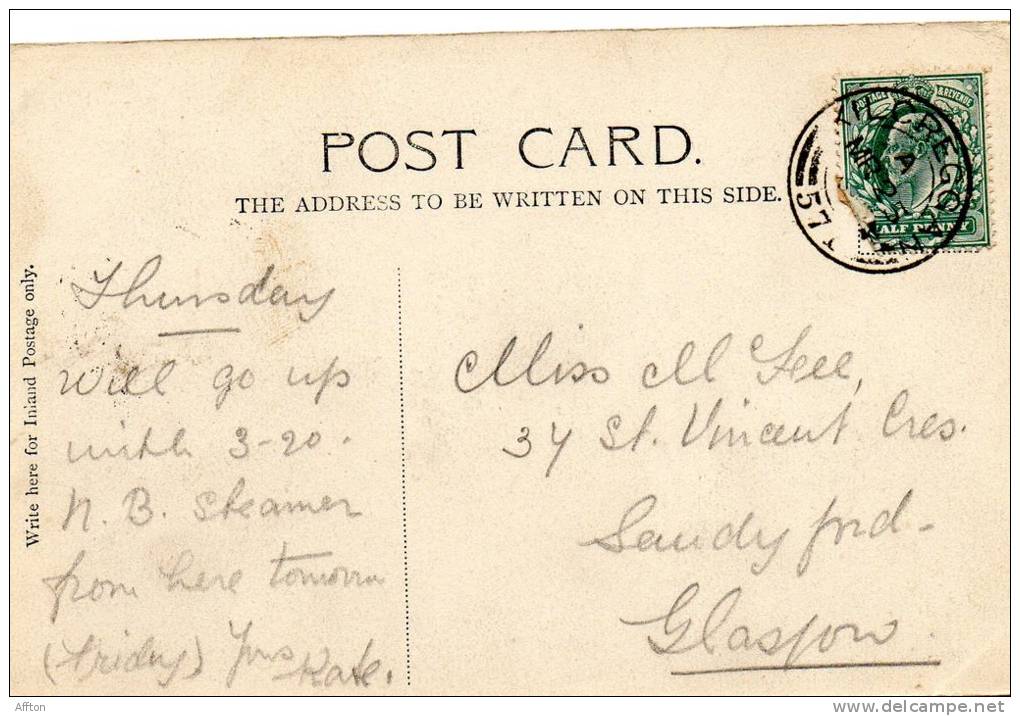 POST CARD.
THE ADDRESS TO BE WRITTEN ON THIS SIDE.
POSTAGE & REVENUE
HALF PENNY
KILCREGGAN
A
MR 25
57
Write here for Inland Postage only.
Thursday
Will go up
with 3-20.
N. B. Steamer
from here tomorrow
(Friday) Yrs
Kate.
Miss M
37 St. Vincent Cres.
Sandyford-
Glasgow
Affton
delcampe.net